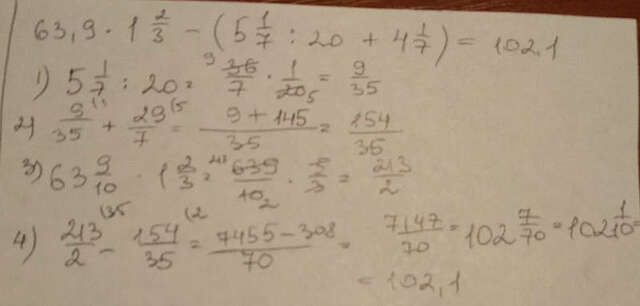 63,9 · 1 2/3 − (5 1/7 : 20 + 4 1/7) = 102,1
1) 5 1/7 : 20 = 9 36/7 · 1/20 5 = 9/35
2) 9/35 (1 + 29/7 (5 = 9 + 145/35 = 154/35
3) 63 9/10 · 1 2/3 = 213 639/10 2 · 5/3 = 213/2
4) 213/2 (35 − 154/35 (2 = 7455 − 308/70 = 7147/70 = 102 7/70 = 102 1/10 =
= 102,1